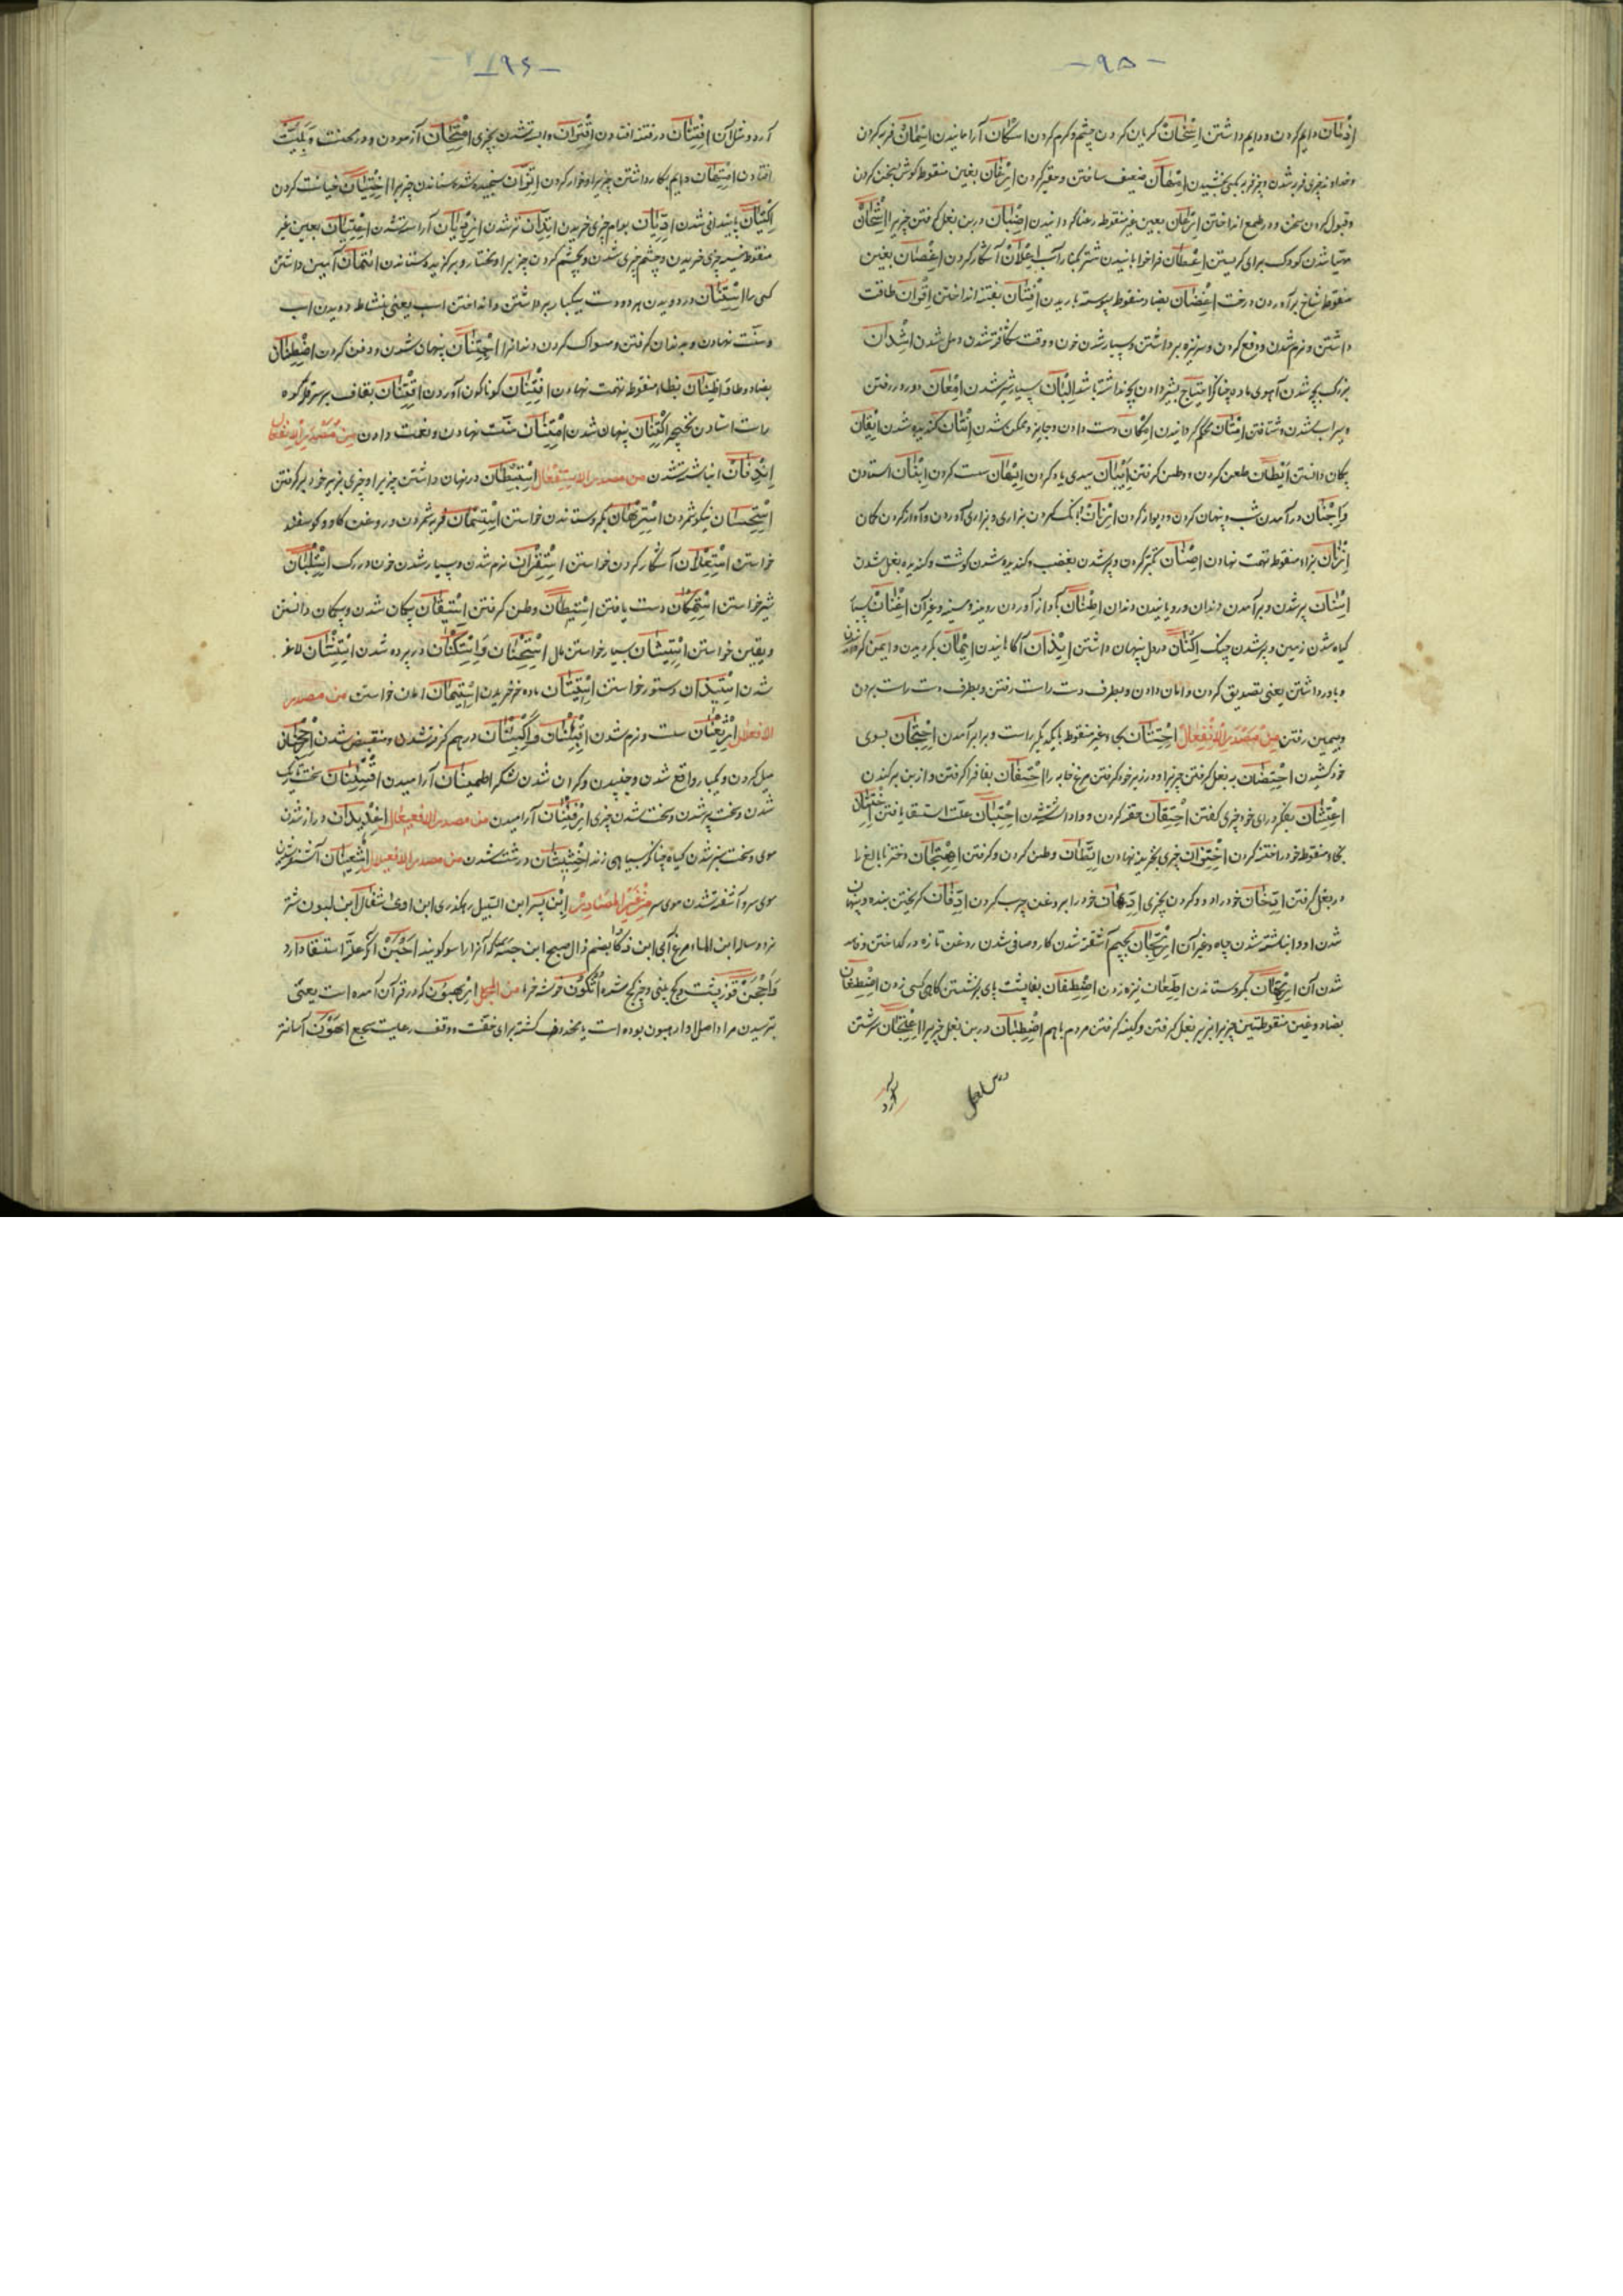 -۹۵-
ادمان دایم کردن و دایم داشتن اسخان گریان کردن چشم و گرم کردن اسکان آرامانیدن اسمان فربه کردن
وخداوند چیزی فربه شدن و چیز فربه بکسی بخشیدن امهان ضعیف ساختن و حقیر کردن ارغان بغین منقوط گوش بسخن کردن
وقبول کردن سخن و در طمع انداختن ارعان بعین غیر منقوط رعنا گردانیدن اضبان در بن بغل گرفتن چیزیرا اشحان
مهیا شدن کودک برای گریستن اعطان فراخوابانیدن شتر بکنار آب اعلان آشکار کردن اغصان بغین
منقوط شاخ برآوردن درخت اغضان بضاد منقوط پیوسته باریدن افتان بفتنه انداختن اقران طاقت
داشتن و نرم شدن و دفع کردن و سر نیزه برداشتن و بسیار شدن خون و وقت شکافته شدن دمل شدن اشدان
بزرگ بچه شدن آهوی ماده چنانکه احتیاج بشیر دادن بچه نداشته باشد البان بسیار شیر شدن امعان دور در رفتن
و سیراب شدن و شتافتن امتان محکم گردانیدن امکان دست دادن و جایز و ممکن شدن انتان گندیده شدن ایقان
بیکان دانستن ایطان طعن کردن و وطن گرفتن ابنان سدی یاد کردن ایهان سست کردن ابنان استادن
واجنان در آمدن شب و پنهان کردن و دیوانه کردن ارنان بانگ کردن بزاری و بزاری آوردن و آواز کردن کمان
ازنان بزاء منقوط تهمت نهادن اصنان تکبر کردن و پر شدن بغضب و گندیده شدن گوشت و گندیده بغل شدن
اسنان پر شدن و برآمدن دندان و رویانیدن دندان اطنان آواز آوردن رویینه و سینه و غیر آن اغنان بسیار
گیاه شدن زمین و پر شدن چنک اکنان در دل پنهان داشتن ایذان آگاهانیدن ایمان گرویدن و ایمن گردانیدن
و باور داشتن یعنی تصدیق کردن و امان دادن و بطرف دست راست رفتن و بطرف دست راست بردن
وبیمین رفتن من مصدر الافتعال احتتان بحاء غیر منقوط با یکدیگر راست و برابر آمدن احتجان بسوی
خود کشیدن احتضان به بغل گرفتن چیزیرا و در زیر خود گرفتن مرغ خایه را احتفان بفا فرا گرفتن و از بن برکندن
اختتان بفکر و رای خود چیزی گفتن احتقان حقنه کردن و وا داشته شدن احتبان علت استسقا یافتن اختتان
بخاء منقوط خود را ختنه کردن اختزان چیزی بخزینه نهادن اتطان وطن کردن و گرفتن اهتجان دختر نابالغ را
در بغل گرفتن ادخان خود را دود کردن بچیزی ادهان خود را بروغن چرب کردن ادفان گریختن بنده و پنهان
شدن او و انباشته شدن چاه و غیر آن ارتجان بجیم آشفته شدن کار و صافی شدن روغن تازه در گداختن و فاسد
شدن آن ارتهان گرو ستاندن اطعان نیزه زدن اصطفان بفا پشت پای بر نشستن گاه کسی زدن اضطغان
بضاد و غین منقوطتین چیزیرا بزیر بغل گرفتن و کینه گرفتن مردم با هم اضطبان در بن بغل چیزیرا اعتجان سرشتن
آرد
-۱۹۶-
آرد و مثل آن افتتان در فتنه افتادن اقتران وابسته شدن بچیزی امتحان آزمودن و در محنت و بلیت
افتادن امتهان دایم بکار داشتن چیزیرا و خوار کردن اتزان سنجیده شده ستاندن چیزیرا اختیان خیانت کردن
اکتیان پایندانی شدن ادیان بوام چیزی خریدن ابتدان تر شدن ازدیان آراسته شدن اعتیان بعین غیر
منقوط نسیه چیزی خریدن و چشم چیزی شدن و بچشم کردن چیزیرا و مختار و برگزیده ستاندن ائتمان امین داشتن
کسی را استنان در دویدن هر دو دست بیکبار برداشتن و انداختن اسب یعنی بنشاط دویدن اسب
و سنت نهادن و بدندان گرفتن و مسواک کردن دندانرا اجتنان پنهان شدن و دفن کردن اضطنان
بضاد و طا اظتنان بظاء منقوط تهمت نهادن افتنان گوناگون آوردن اقتنان بقاف بر سر قله کوه
راست استادن نخجیر اکتنان پنهان شدن امتنان منت نهادن و نعمت دادن من مصدر الانفعال
اندفان انباشته شدن من مصدر الاستفعال استبطان در نهان داشتن چیزیرا و چیزی بزیر خود بر گرفتن
استحسان نیکو شمردن استرهان بگرو ستاندن خواستن استسمان فربه شمردن و روغن گاو و گوسفند
خواستن استعلان آشکار کردن خواستن استقران نرم شدن و بسیار شدن خون در رگ استلبان
شیر خواستن استمکان دست یافتن استیطان وطن گرفتن استیقان بیکان شدن و بیکان دانستن
و یقین خواستن استیشان بسیار خواستن مال استجنان و استکنان در پرده شدن استشنان لاغر
شدن استیذان دستور خواستن استیتان ماده خر خریدن استیمان امان خواستن من مصدر
الافعلال ارثعنان سست و نرم شدن اقبئنان و اکبئنان در هم گرفته شدن و منقبض شدن ارجحنان
میل کردن و یکبار واقع شدن و جنبیدن و گران شدن لشکر اطمینان آرامیدن اقسئنان سخت تاریک
شدن و سخت پیر شدن و سخت شدن چیزی ارفئنان آرامیدن من مصدر الافعیعال اغدیدان دراز شدن
موی و سخت سبز شدن گیاه چنانکه بسیاهی زند اخشیشان درشت شدن من مصدر الافعیلال اشعینان آشفته شدن
موی سر و آشفته شدن موی سر من غیر المصادر ابن پسر ابن السبیل رهگذری ابن اوی شغال ابن لبون شتر
نر دو ساله ابن الماء مرغ آبی ابن ذکا بضم ذال صبح ابن جسته که آنرا راسو گویند احبن آنکه علت استسقا دارد
واحجن قوز پشت و کج بینی و چیز کج شده اثکون خوشه خرما من الجمل ارهبون که در قرآن آمده است یعنی
بترسیدن مرا و اصل او ارهبون بوده است یا محذوف گشته برای خفت و وقف رعایت سجع اهون آسانتر